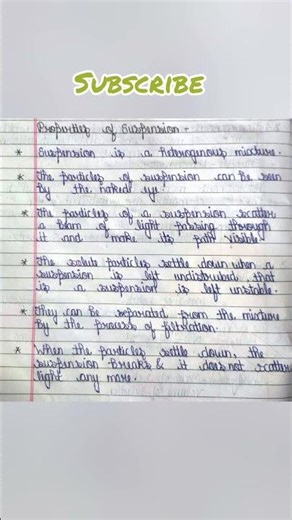 SUBSCRIBE
Properties of Suspension -
* Suspension is a heterogenous mixture.
* The particles of suspension can be seen
by the naked eye
* The particles of a suspension scatter
a beam of light passing through
it and make its path visible
* The solute particles settle down when a
suspension is left undisturbed, that
is a suspension is left unstable.
* They can be separated from the mixture
by the process of filtration.
* When the particles settle down, the
suspension breaks & it does not scatter
light any more.